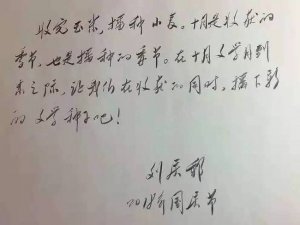 收完玉米，播种小麦。十月是收获的
季节，也是播种的季节。在十月文学月到
来之际，让我们在收获的同时，播下新
的文学种子吧！
刘庆邦
2018年国庆节